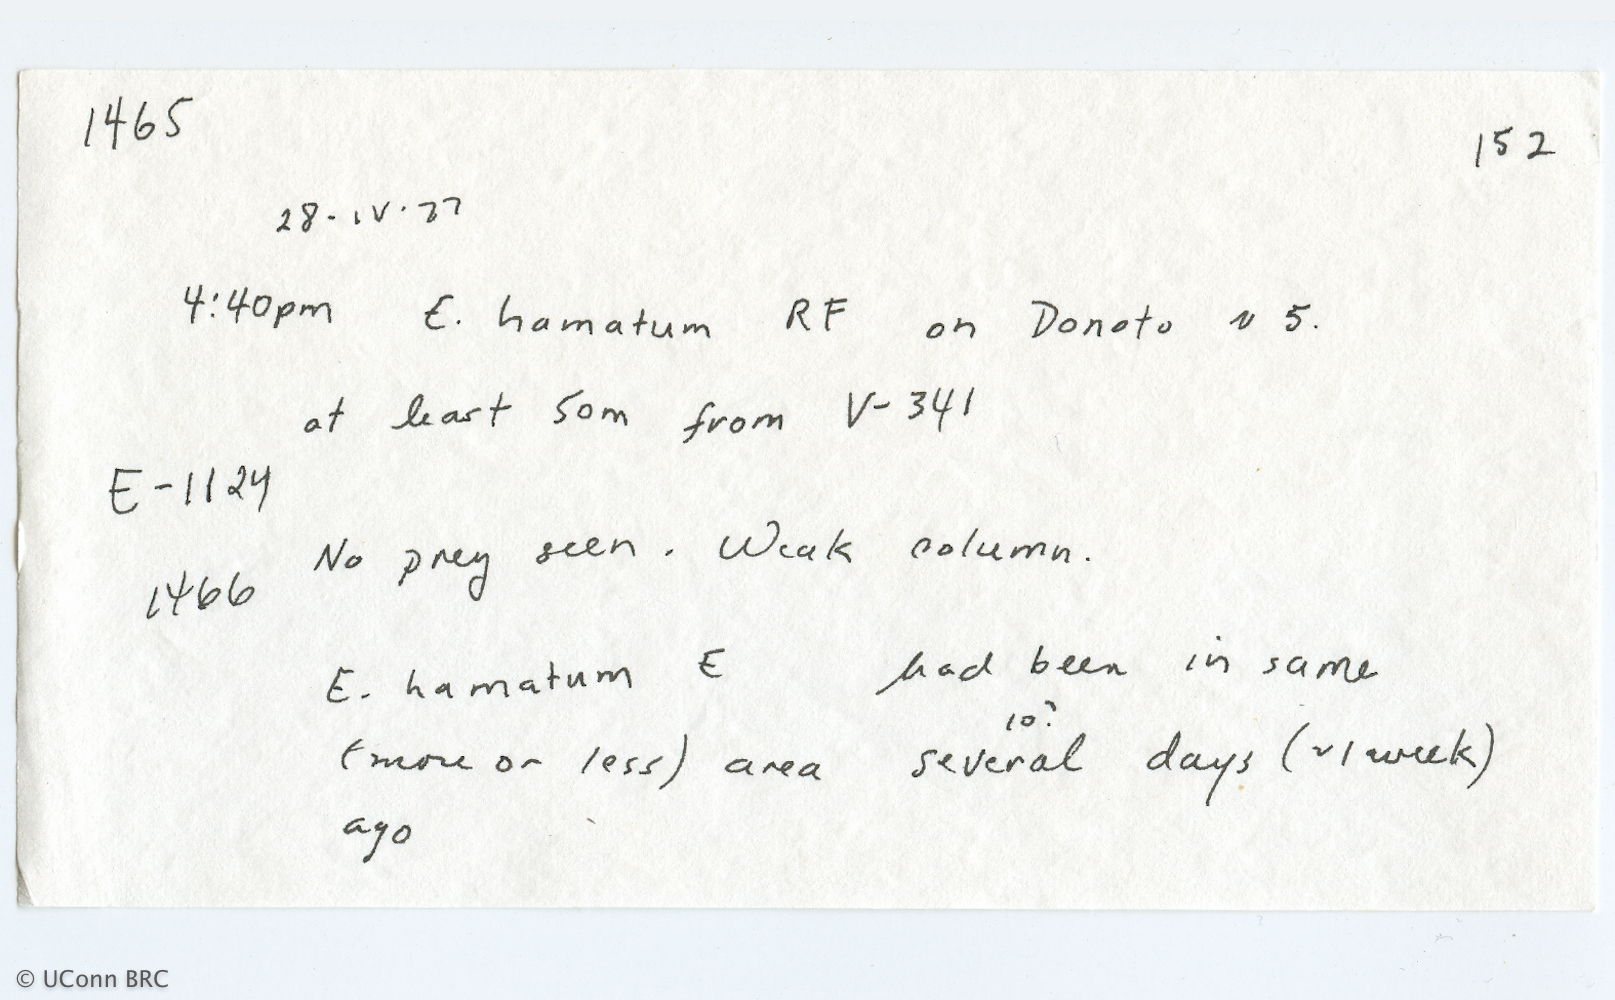 1465
152
28-IV-77
4:40pm E. hamatum RF on Donato ~ 5.
at least 50m from V-341
E-1124
No prey seen. Weak column.
1466
E. hamatum E had been in same
10?
(more or less) area several days (~1 week)
ago
© UConn BRC